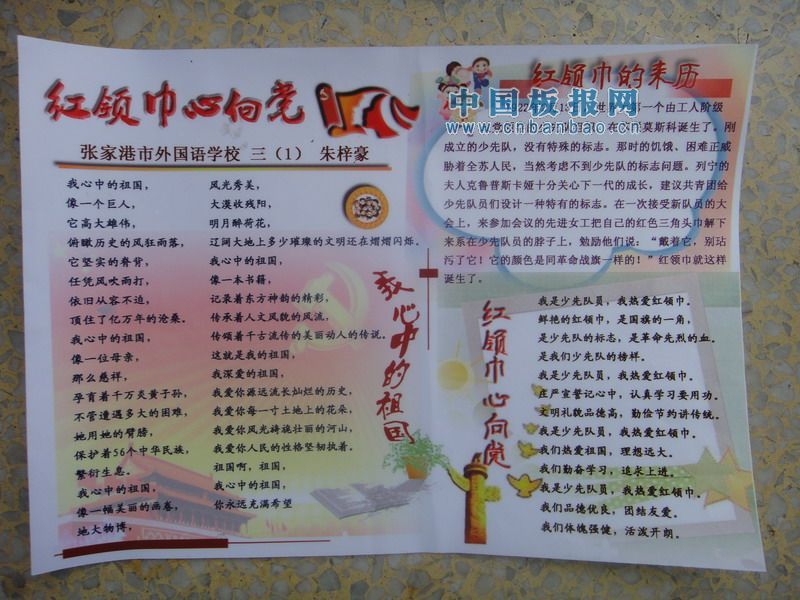 红领巾心向党
张家港市外国语学校 三（1） 朱梓豪
我心中的祖国，
像一个巨人，
它高大雄伟，
俯瞰历史的风狂雨落，
它坚实的脊背，
任凭风吹雨打，
依旧从容不迫，
顶住了亿万年的沧桑。
我心中的祖国，
像一位母亲，
那么慈祥，
孕育着千万炎黄子孙，
不管遭遇多大的困难，
她用她的臂膀，
保护着56个中华民族，
繁衍生息。
我心中的祖国，
像一幅美丽的画卷，
地大物博，
风光秀美，
大漠收残阳，
明月醉荷花，
辽阔大地上多少璀璨的文明还在熠熠闪烁。
我心中的祖国，
像一本书籍，
记录着东方神韵的精彩，
传承着人文风貌的风流，
传颂着千古流传的美丽动人的传说。
这就是我的祖国，
我深爱的祖国，
我爱你源远流长灿烂的历史，
我爱你每一寸土地上的花朵，
我爱你风光旖旎壮丽的河山，
我爱你人民的性格坚韧执着。
祖国啊，祖国，
我心中的祖国，
你永远充满希望
我心中的祖国
红领巾的来历
中国板报网
www.chinabanbao.com.cn
第一个由工人阶级
莫斯科诞生了。刚
成立的少先队，没有特殊的标志。那时的饥饿、困难正威
胁着全苏人民，当然考虑不到少先队的标志问题。列宁的
夫人克鲁普斯卡娅十分关心下一代的成长，建议共青团给
少先队员们设计一种特有的标志。在一次接受新队员的大
会上，来参加会议的先进女工把自己的红色三角头巾解下
来系在少先队员的脖子上，勉励他们说：“戴着它，别玷
污了它！它的颜色是同革命战旗一样的！”红领巾就这样
诞生了。
红领巾心向党
我是少先队员，我热爱红领巾。
鲜艳的红领巾，是国旗的一角，
是少先队的标志，是革命先烈的血。
是我们少先队的榜样。
我是少先队员，我热爱红领巾。
庄严宣誓记心中，认真学习要用功。
文明礼貌品德高，勤俭节约讲传统。
我是少先队员，我热爱红领巾。
我们热爱祖国，理想远大。
我们勤奋学习，追求上进。
我是少先队员，我热爱红领巾。
我们品德优良，团结友爱。
我们体魄强健，活泼开朗。